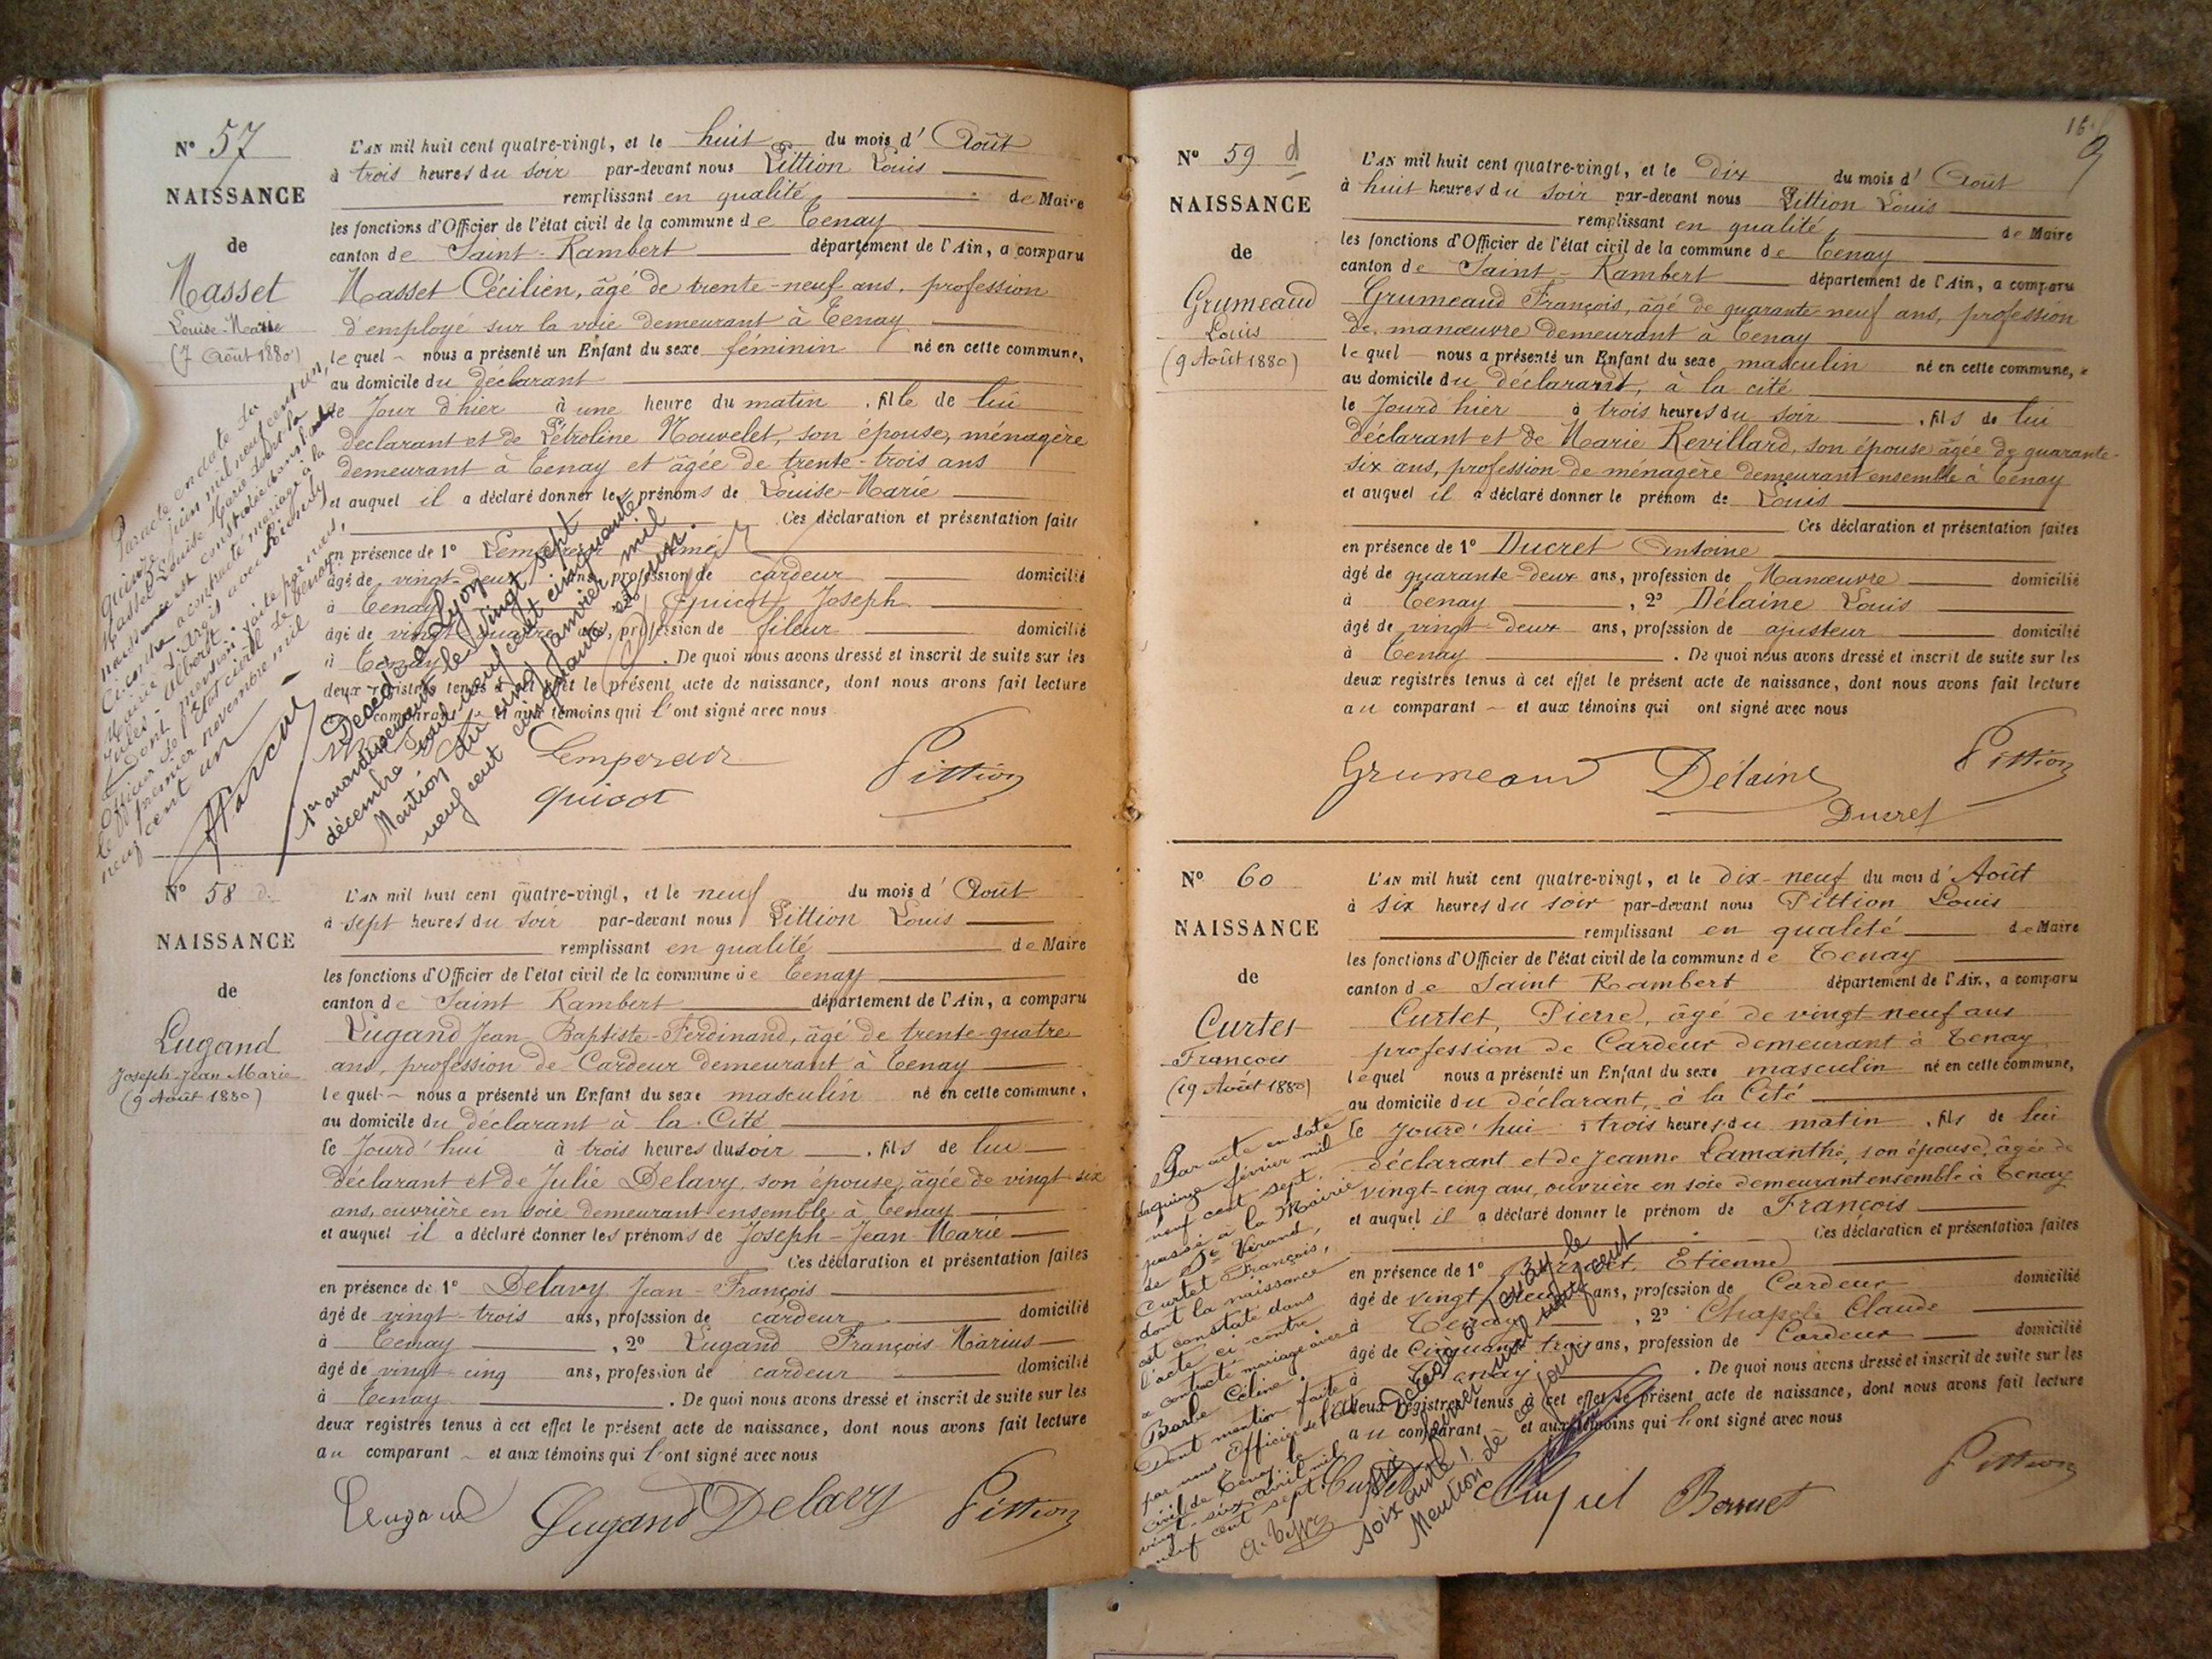 N° 57
NAISSANCE
de
Masset
Louise-Marie
(7 Août 1880)
L'AN mil huit cent quatre-vingt, et le huit du mois d' Août
à trois heures du soir par-devant nous Pittion Louis
remplissant en qualité de Maire
les fonctions d'Officier de l'état civil de la commune de Tenay
canton de Saint-Rambert département de l'Ain, a comparu
Masset Cécilien, âgé de trente-neuf ans, profession
d'employé sur la voie demeurant à Tenay
lequel nous a présenté un Enfant du sexe féminin né en cette commune,
au domicile du déclarant
le Jour d'hier à une heure du matin, fille de lui
déclarant et de Pétroline Nouvelet, son épouse, ménagère
demeurant à Tenay et âgée de trente-trois ans
et auquel il a déclaré donner les prénoms de Louise-Marie
Ces déclaration et présentation faites
en présence de 1° Lempereur Aimé
âgé de vingt-deux ans, profession de cardeur domicilié
à Tenay, 2° Guicot Joseph
âgé de vingt-quatre ans, profession de fileur domicilié
à Tenay. De quoi nous avons dressé et inscrit de suite sur les
deux registres tenus à cet effet le présent acte de naissance, dont nous avons fait lecture
au comparant et aux témoins qui l'ont signé avec nous
Lempereur
Guicot
Pittion
Par acte en date du
quinze juin mil neuf cent un,
Masset Louise Marie dont la
naissance est constatée dans l'acte
Ci-contre a contracté mariage à la
Mairie d'
Jules-Albert
Dont mention faite par nous,
Officier de l'Etat civil de Tenay,
le premier novembre mil
neuf cent un
Décédée à Lyon
1er arrondissement le vingt sept
décembre mil neuf cent cinquante
Mention du cinq janvier mil
neuf cent cinquante et un.
N° 58 d.
NAISSANCE
de
Lugand
Joseph Jean Marie
(9 Août 1880)
L'AN mil huit cent quatre-vingt, et le neuf du mois d' Août
à sept heures du soir par-devant nous Pittion Louis
remplissant en qualité de Maire
les fonctions d'Officier de l'état civil de la commune de Tenay
canton de Saint Rambert département de l'Ain, a comparu
Lugand Jean-Baptiste-Ferdinand, âgé de trente-quatre
ans, profession de Cardeur demeurant à Tenay
lequel nous a présenté un Enfant du sexe masculin né en cette commune,
au domicile du déclarant à la Cité
le Jourd'hui à trois heures du soir, fils de lui
déclarant et de Julie Delavy, son épouse, âgée de vingt-six
ans, ouvrière en soie demeurant ensemble à Tenay
et auquel il a déclaré donner les prénoms de Joseph-Jean-Marie
Ces déclaration et présentation faites
en présence de 1° Delavy Jean-François
âgé de vingt-trois ans, profession de cardeur domicilié
à Tenay, 2° Lugand François Marius
âgé de vingt-cinq ans, profession de cardeur domicilié
à Tenay. De quoi nous avons dressé et inscrit de suite sur les
deux registres tenus à cet effet le présent acte de naissance, dont nous avons fait lecture
au comparant et aux témoins qui l'ont signé avec nous
Lugand Lugand Delavy Pittion
16.
9
N° 59 d
NAISSANCE
de
Grumeaud
Louis
(9 Août 1880)
L'AN mil huit cent quatre-vingt, et le Dix du mois d' Août
à huit heures du soir par-devant nous Pittion Louis
remplissant en qualité de Maire
les fonctions d'Officier de l'état civil de la commune de Tenay
canton de Saint-Rambert département de l'Ain, a comparu
Grumeaud François, âgé de quarante neuf ans, profession
de manœuvre demeurant à Tenay
lequel nous a présenté un Enfant du sexe masculin né en cette commune,
au domicile du déclarant, à la cité
le Jourd'hier à trois heures du soir, fils de lui
déclarant et de Marie Revillard, son épouse âgée de quarante-
six ans, profession de ménagère demeurant ensemble à Tenay
et auquel il a déclaré donner le prénom de Louis
Ces déclaration et présentation faites
en présence de 1° Ducret Antoine
âgé de quarante-deux ans, profession de Manœuvre domicilié
à Tenay, 2° Délaine Louis
âgé de vingt-deux ans, profession de ajusteur domicilié
à Tenay. De quoi nous avons dressé et inscrit de suite sur les
deux registres tenus à cet effet le présent acte de naissance, dont nous avons fait lecture
au comparant et aux témoins qui ont signé avec nous
Grumeaud Délaine Pittion
Ducret
N° 60
NAISSANCE
de
Curtet
François
(19 Août 1880)
L'AN mil huit cent quatre-vingt, et le dix-neuf du mois d' Août
à six heures du soir par-devant nous Pittion Louis
remplissant en qualité de Maire
les fonctions d'Officier de l'état civil de la commune de Tenay
canton de Saint Rambert département de l'Ain, a comparu
Curtet, Pierre, âgé de vingt-neuf ans
profession de Cardeur demeurant à Tenay
lequel nous a présenté un Enfant du sexe masculin né en cette commune,
au domicile du déclarant, à la Cité
le jourd'hui à trois heures du matin, fils de lui
déclarant et de Jeanne Lamanthe, son épouse, âgée de
vingt-cinq ans, ouvrière en soie demeurant ensemble à Tenay
et auquel il a déclaré donner le prénom de François
Ces déclaration et présentation faites
en présence de 1° Etienne
âgé de vingt ans, profession de Cardeur domicilié
à Tenay, 2° Claude
âgé de Cinquante trois ans, profession de Cardeur domicilié
à Tenay. De quoi nous avons dressé et inscrit de suite sur les
deux registres tenus à cet effet le présent acte de naissance, dont nous avons fait lecture
au comparant et aux témoins qui l'ont signé avec nous
Pittion
Par acte en date
du quinze février mil
neuf cent sept,
passé à la Mairie
de St Vérand,
Curtet François,
dont la naissance
est constatée dans
l'acte ci-contre
a contracté mariage avec
Barbe Céline.
Dont mention faite
par nous Officier de l'état
civil de Tenay le
vingt-six avril mil
neuf cent sept.
Décédé à Tenay le
six février mil neuf cent
soixante!
Mention de ce jour